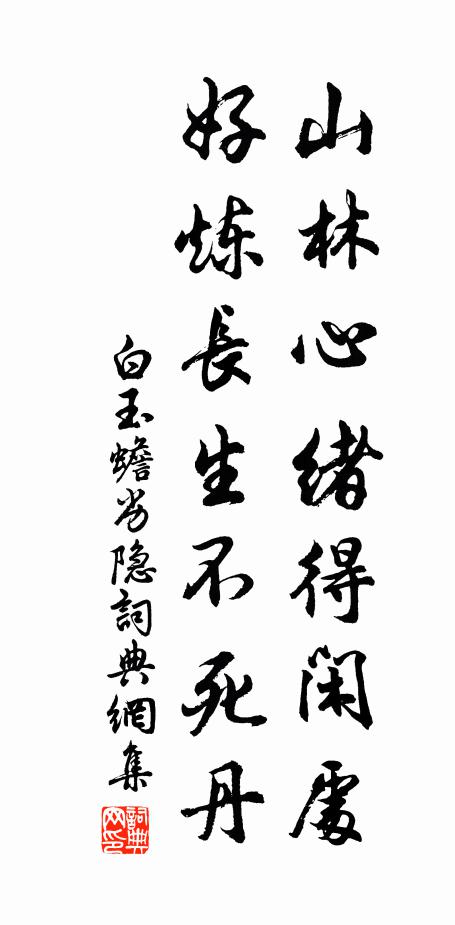 山林心緒得閑處
好炼長生不死丹
白玉蟾劝隐詞典網集
詞典网印